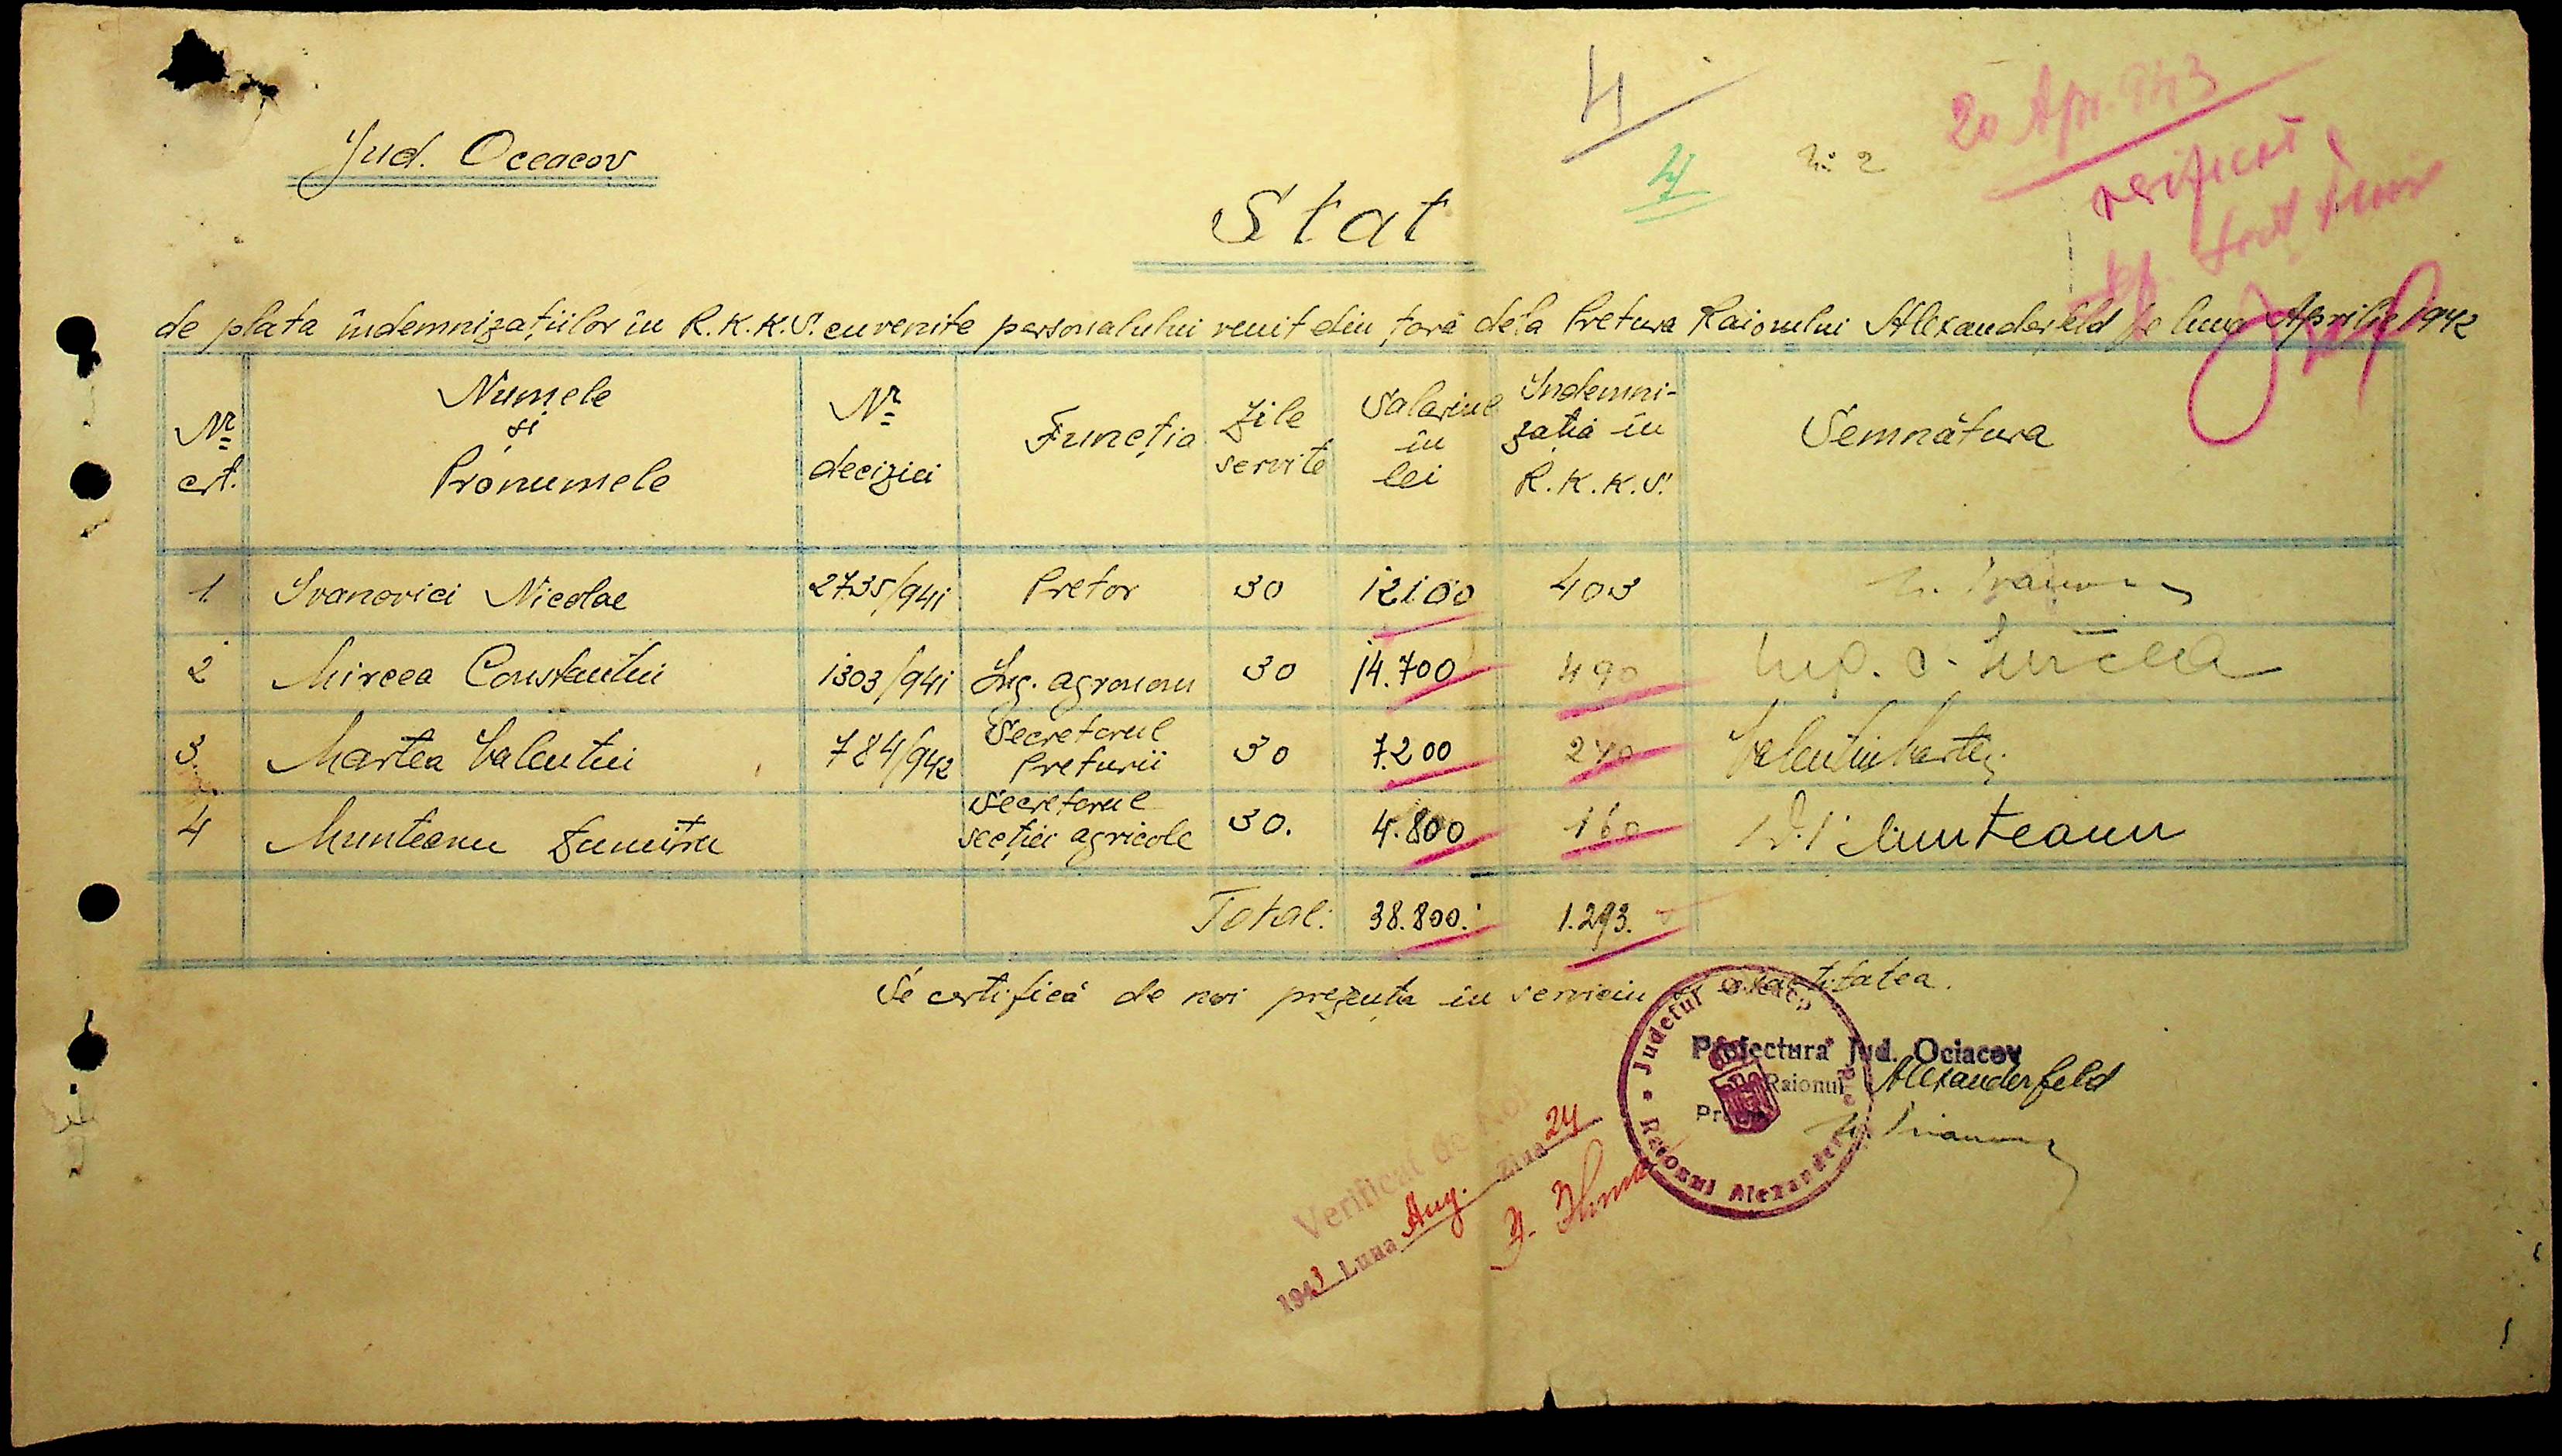 4
20 Apr. 943
Jud. Oceacov
4
No 2
verificat
Stat
de plata îndemnizațiilor în R.K.K.S. cuvenite personalului venit din țară dela Pretura Raionului Alexanderfeld pe luna Aprilie 1942
Nr. crt. Numele și Pronumele Nr. deciziei Funcția Zile servite Salariul în lei Indemnizația în R.K.K.S. Semnătura
1 Ivanovici Nicolae 2735/941 Pretor 30 12100 403
2 Mircea Constantin 1303/941 Ing. agronom 30 14.700 490 Ing. C. Mircea
3. Martea Valentin 784/942 Secretarul Preturii 30 7.200 240 Valentin Martea
4 Munteanu Dumitru Secretarul secției agricole 30. 4.800 160 D. Munteanu
Total: 38.800. 1.293.
Se certifică de noi prezența în serviciu și exactitatea.
Județul Oceacov
Prefectura Jud. Ociacov
Raionul Alexanderfeld
Raionul Alexanderfeld
Verificat de Noi
1943 Luna Aug. Ziua 24